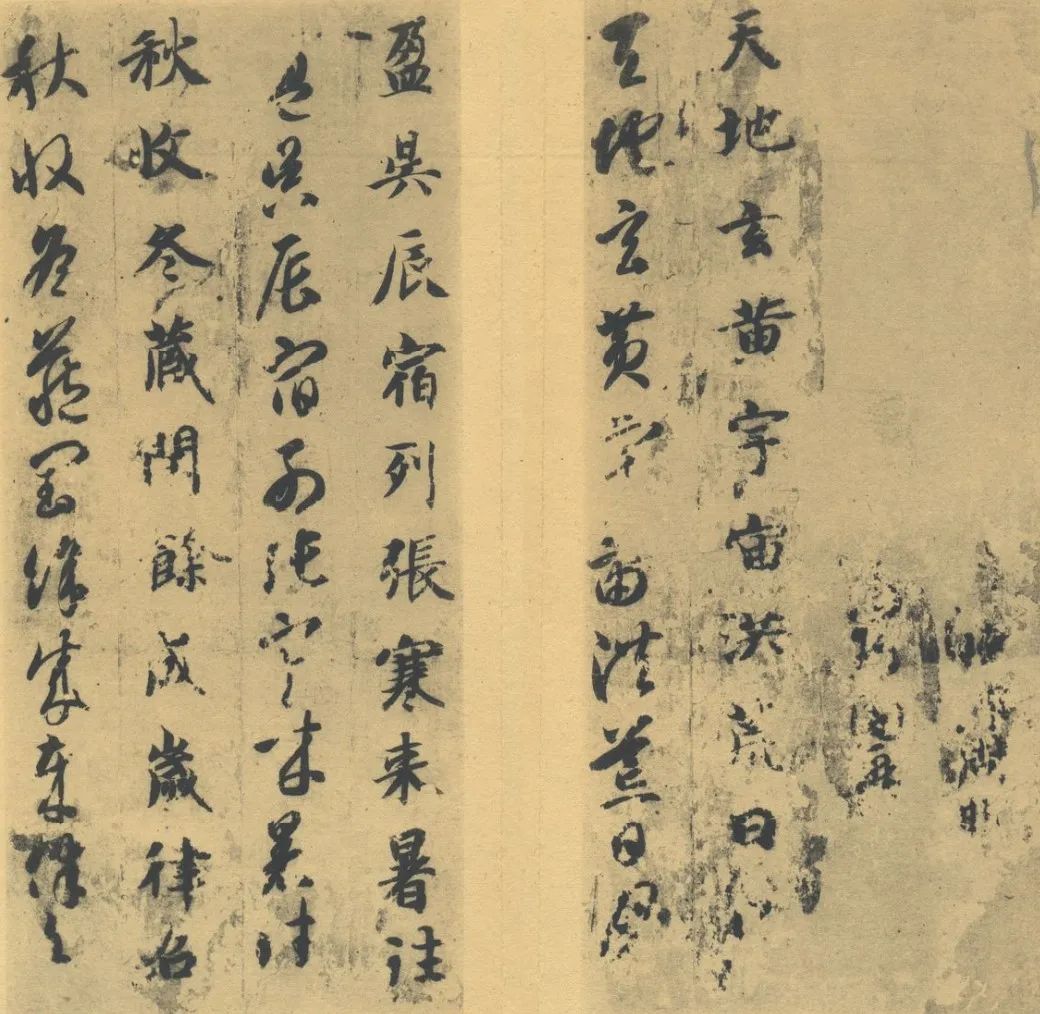 天地玄黄宇宙洪荒日
天地玄黄宇宙洪荒日
盈昃辰宿列張寒来暑往
盈昃辰宿列張寒来暑往
秋收冬藏閏餘成歲律召
秋收冬藏閏餘成歲律召